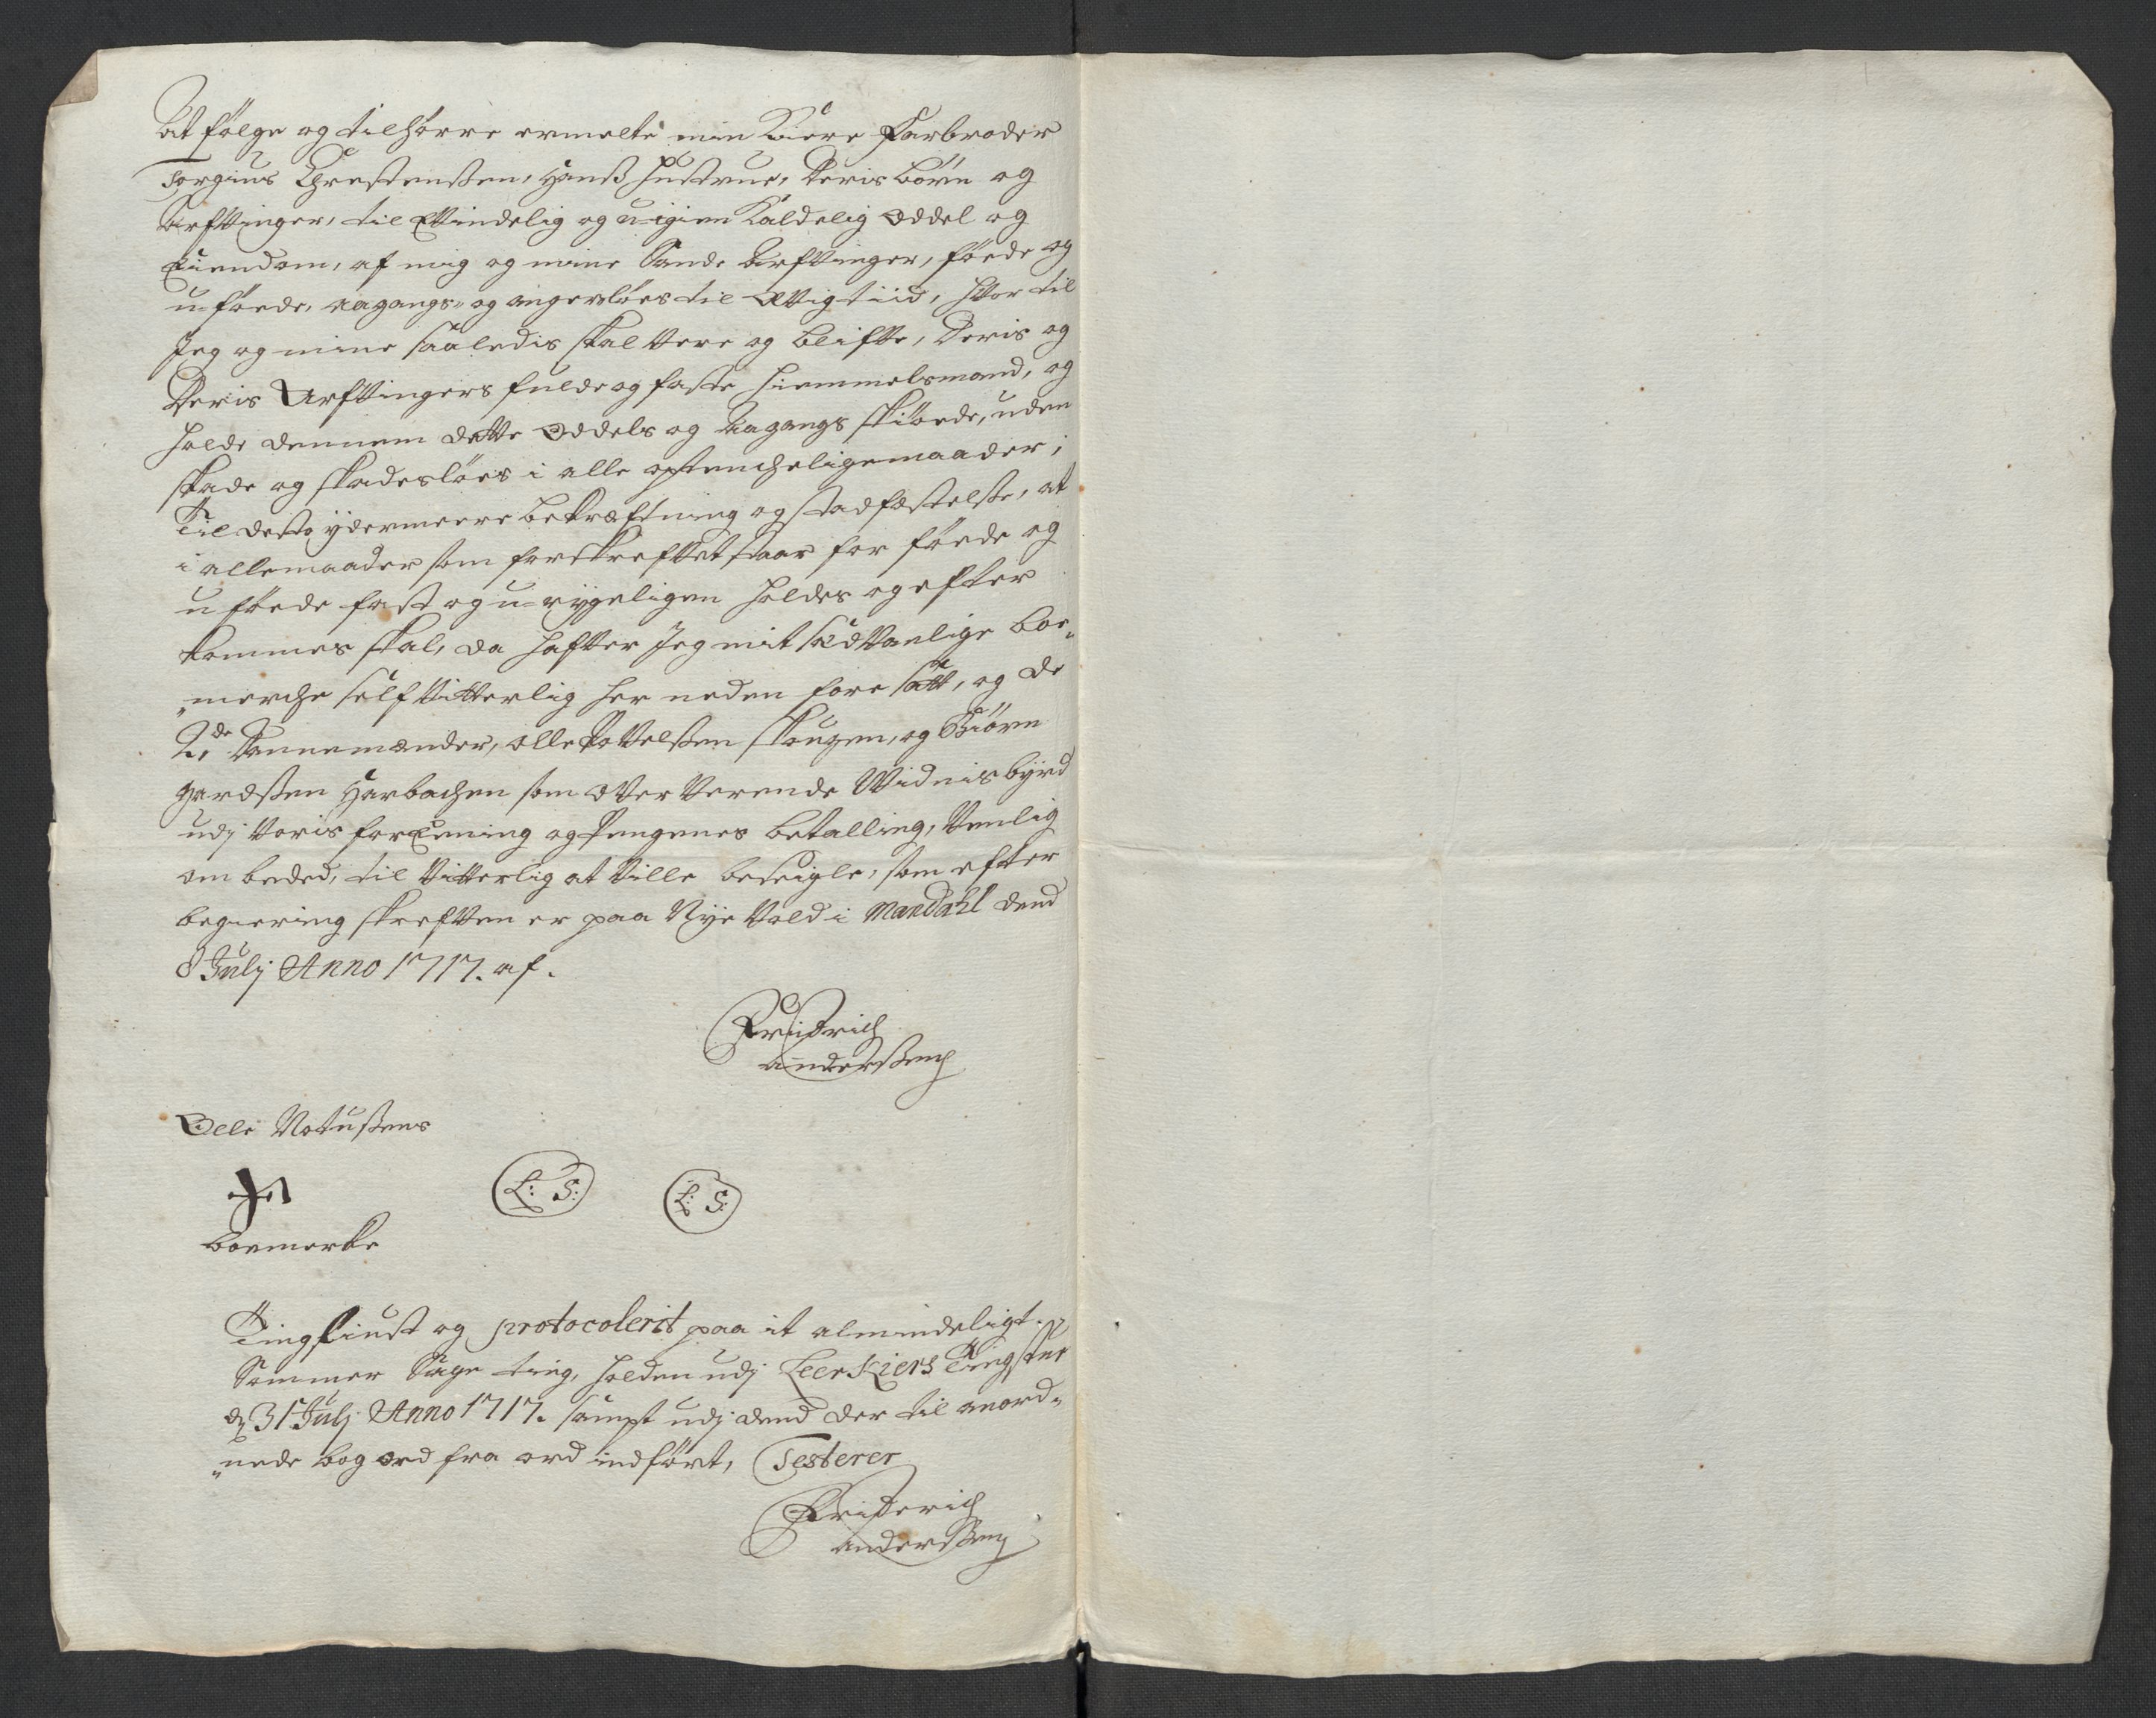 At følge og tilhørre ermelte min Kiere Farbroder
Torgius Chrestenßen, Hanß Hustrue, Deris børn og
Arfvinger, til Evindelig og u-igien Kaldelig Oddel og
Eiendom, af mig og mine Sande Arfvinger, føde og
u-føede, aagangs- og angerløes til Ævig tiid, hvor til
Jeg og mine saaledis skal vere og blifve, Deris og
Deris Arfvingers fulde og faste Hiemmelsmand, og
holde dennem dette Oddels og Aagangs skiøede, uden
skade og skadesløes i alle optencheligemaader;
Til desto ydermeere bekræftning og stadfæstelße, at
i allemaader som forskrefvet staar for føede og
u føede fast og u-rygeligen holdes og efter
kommes skal, da hafver Jeg mit sædvanlige boe-
-merche self vitterlig her neden fore sætt, og de
2de Dannemænder, Olle Rottelßen Skougen, og Biørn
Haroßen Harbachen som over verende Vidnisbyrd
udj voris foreening og Pengenes betalling, venlig
om beded, til vitterlig at ville beseigle, som efter
begiering skrefven er paa Nye Vold i Mandahl dend
8 Julj Anno 1717. af.
Friderich
Anderßen
Olle Rotußens
L: S: L: S:
boemerke
Tingliust og protocolerit paa it almindeligt
Sommer Sage ting, holden udj Leerkiers Tingstue
d. 31 Julj Anno 1717. sampt udj dend der til anord-
-nede bog ord fra ord indført, Testerer
Friderich
Anderßen